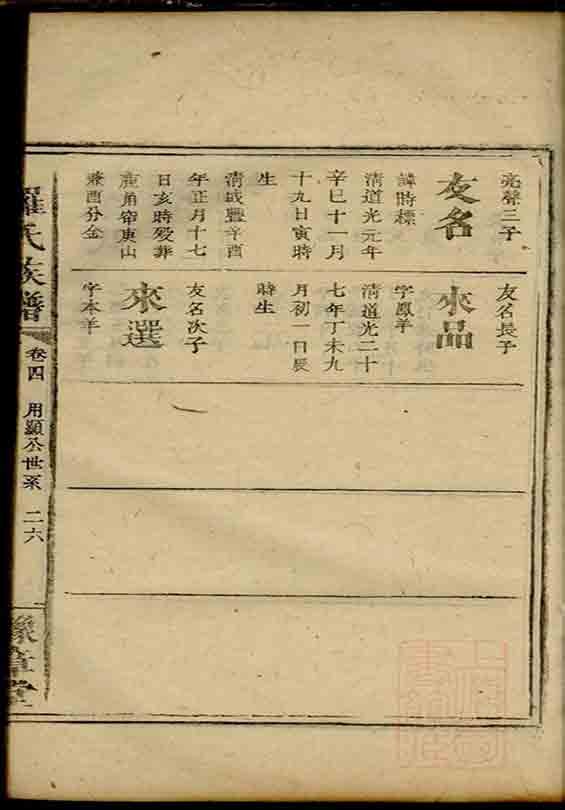 亮聲三子
友名
諱時標
清道光元年
辛巳十一月
十九日寅時
生
清咸豐辛酉
年正月十七
日亥時歿葬
鹿角帘庚山
兼酉分金
友名長子
來品
字鳳羊
清道光二十
七年丁未九
月初一日辰
時生
友名次子
來選
字本羊
羅氏族譜
卷四
用顯公世系
二六
豫章堂